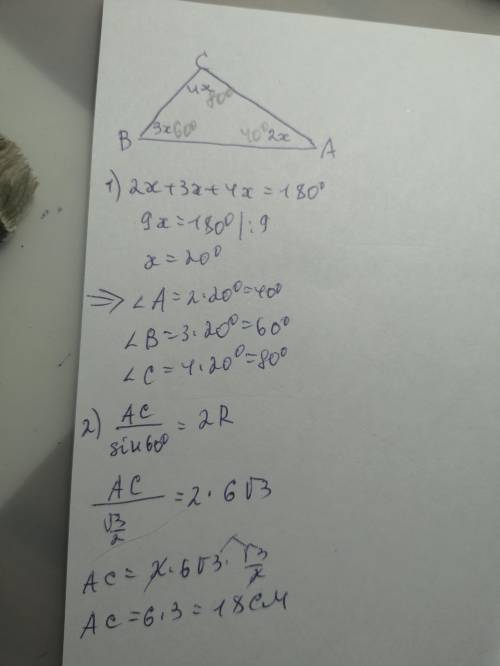 C
4x 80°
B 3x 60° 40° 2x A
1) 2x+3x+4x=180°
9x=180° |:9
x=20°
⇒ ∠A=2·20°=40°
∠B=3·20°=60°
∠C=4·20°=80°
2) AC/sin60° = 2R
AC/(√3/2) = 2·6√3
AC = 2·6√3·√3/2
AC=6·3=18см